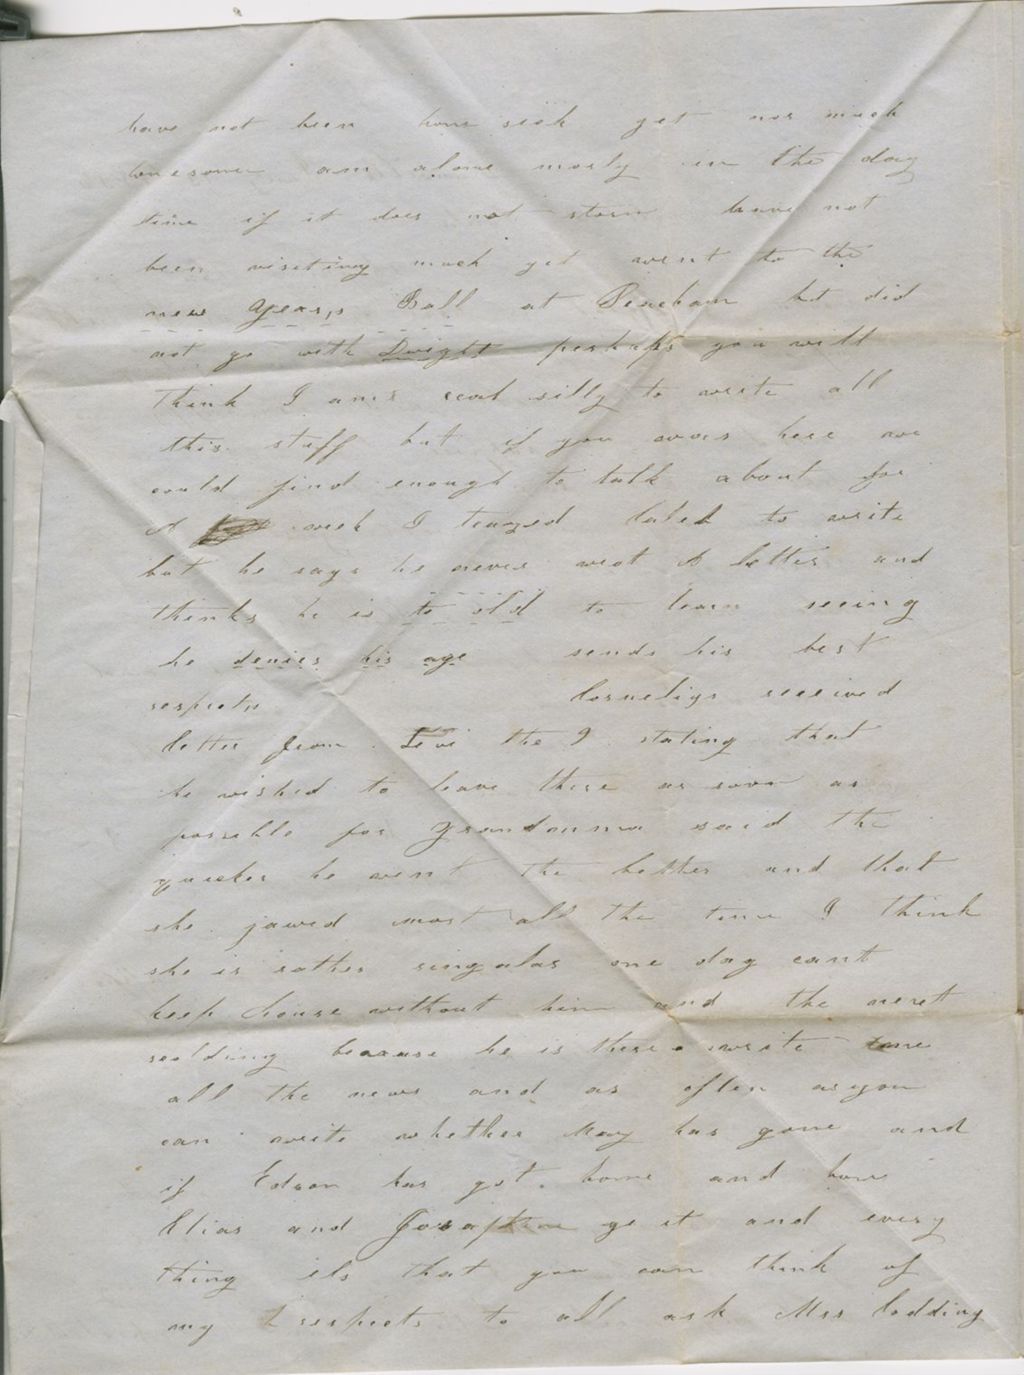 have not been home sick yet nor much
lonesome am alone mosly in the day
time if it does not storm have not
been viseting much yet went to the
new years Ball at Peacham but did
not go with Dwight perhaps you will
think I am real silly to write all
this stuff but if you were here we
could find enough to talk about for
A week I teazed to write
but he says he never wrot A letter and
thinks he is to old to learn seeing
he denies his age sends his best
respects Cornelius received
letter from Levi the I stating that
he wished to leave there as soon as
possible for Grandmma said the
quicker he went the better and that
she jawed most all the time I think
she is rather singular one day cant
keep house without him and the next
scolding because he is there write me
all the news and as often as you
can write whether May has gone and
if Edson has got home and how
Elias and Josaphine ge it and every
thing els that you can think of
my respects to all ask Mrs Codding